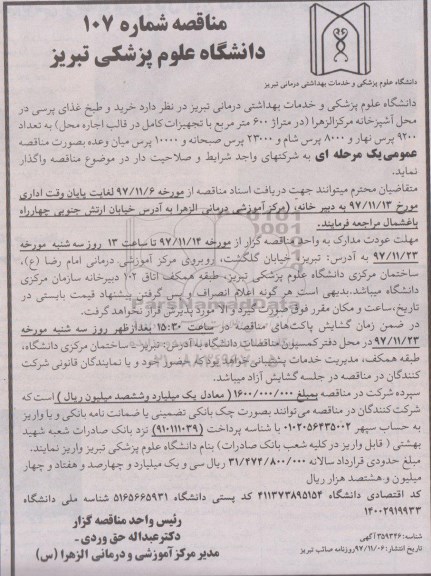 مناقصه شماره ۱۰۷
دانشگاه علوم پزشکی تبریز
دانشگاه علوم پزشکی و خدمات بهداشتی درمانی تبریز
دانشگاه علوم پزشکی و خدمات بهداشتی درمانی تبریز در نظر دارد خرید و طبخ غذای پرسی در
محل آشپزخانه مرکزالزهرا (در متراژ ۶۰۰ متر مربع با تجهیزات کامل در قالب اجاره محل) به تعداد
۹۲۰۰ پرس نهار و ۸۰۰۰ پرس شام و ۲۳۰۰۰ پرس صبحانه و ۱۰۰۰۰ پرس میان وعده بصورت مناقصه
عمومی یک مرحله ای به شرکتهای واجد شرایط و صلاحیت دار در موضوع مناقصه واگذار
نماید.
متقاضیان محترم میتوانند جهت دریافت اسناد مناقصه از مورخه ۹۷/۱۱/۶ لغایت پایان وقت اداری
مورخ ۹۷/۱۱/۱۳ به دبیر خانه، (مرکز آموزشی درمانی الزهرا به آدرس خیابان ارتش جنوبی چهارراه
باغشمال مراجعه فرمایند.
مهلت عودت مدارک به واحد مناقصه گزار از مورخه ۹۷/۱۱/۱۴ تا ساعت ۱۳ روز سه شنبه مورخه
۹۷/۱۱/۲۳ به آدرس: تبریز، خیابان گلگشت، روبروی مرکز آموزشی درمانی امام رضا (ع)،
ساختمان مرکزی دانشگاه علوم پزشکی تبریز، طبقه همکف اتاق ۱۰۲ دبیرخانه سازمان مرکزی
دانشگاه میباشد.بدیهی است هر گونه اعلام انصراف یا پس گرفتن پیشنهاد قیمت بایستی در
تاریخ، ساعت و مکان مقرر فوق صورت گیرد و الا مورد پذیرش قرار نخواهد گرفت.
در ضمن زمان گشایش پاکت‌های مناقصه در ساعت ۱۵:۳۰ بعدازظهر روز سه شنبه مورخه
۹۷/۱۱/۲۳ در محل دفتر کمسیون مناقصات دانشگاه به آدرس: تبریز - ساختمان مرکزی دانشگاه،
طبقه همکف، مدیریت خدمات پشتیبانی خواهد بود که حضور خود و یا نمایندگان قانونی شرکت
کنندگان در مناقصه در جلسه گشایش آزاد میباشد.
سپرده شرکت در مناقصه بمبلغ ۱۶۰۰/۰۰۰/۰۰۰ (معادل یک میلیارد و ششصد میلیون ریال) است که
شرکت کنندگان در مناقصه می توانند بصورت چک بانکی تضمینی یا ضمانت نامه بانکی و یا واریز
به حساب سپهر ۰۱۰۲۰۵۶۴۳۵۰۰۲ با شناسه پرداخت (۹۱۰۱۱۱۰۳۹) نزد بانک صادرات شعبه شهید
بهشتی (قابل واریز در کلیه شعب بانک صادرات) بنام دانشگاه علوم پزشکی تبریز واریز نمایند.
مبلغ حدودی قرارداد سالانه ۳۱/۴۷۴/۸۰۰/۰۰۰ ریال سی و یک میلیارد و چهارصد و هفتاد و چهار
میلیون و هشتصد هزار ریال
کد اقتصادی دانشگاه ۴۱۱۳۷۳۸۹۵۱۵۴ کد پستی دانشگاه ۵۱۶۵۶۶۵۹۳۱ شناسه ملی دانشگاه
۱۴۰۰۲۹۱۹۹۳۳
رئیس واحد مناقصه گزار
دکترعبداله حق وردی -
مدیر مرکز آموزشی و درمانی الزهرا (س)
شناسه: ۳۵۹۳۴۶ آگهی
تاریخ انتشار: ۹۷/۱۱/۰۶ روزنامه صائب تبریز